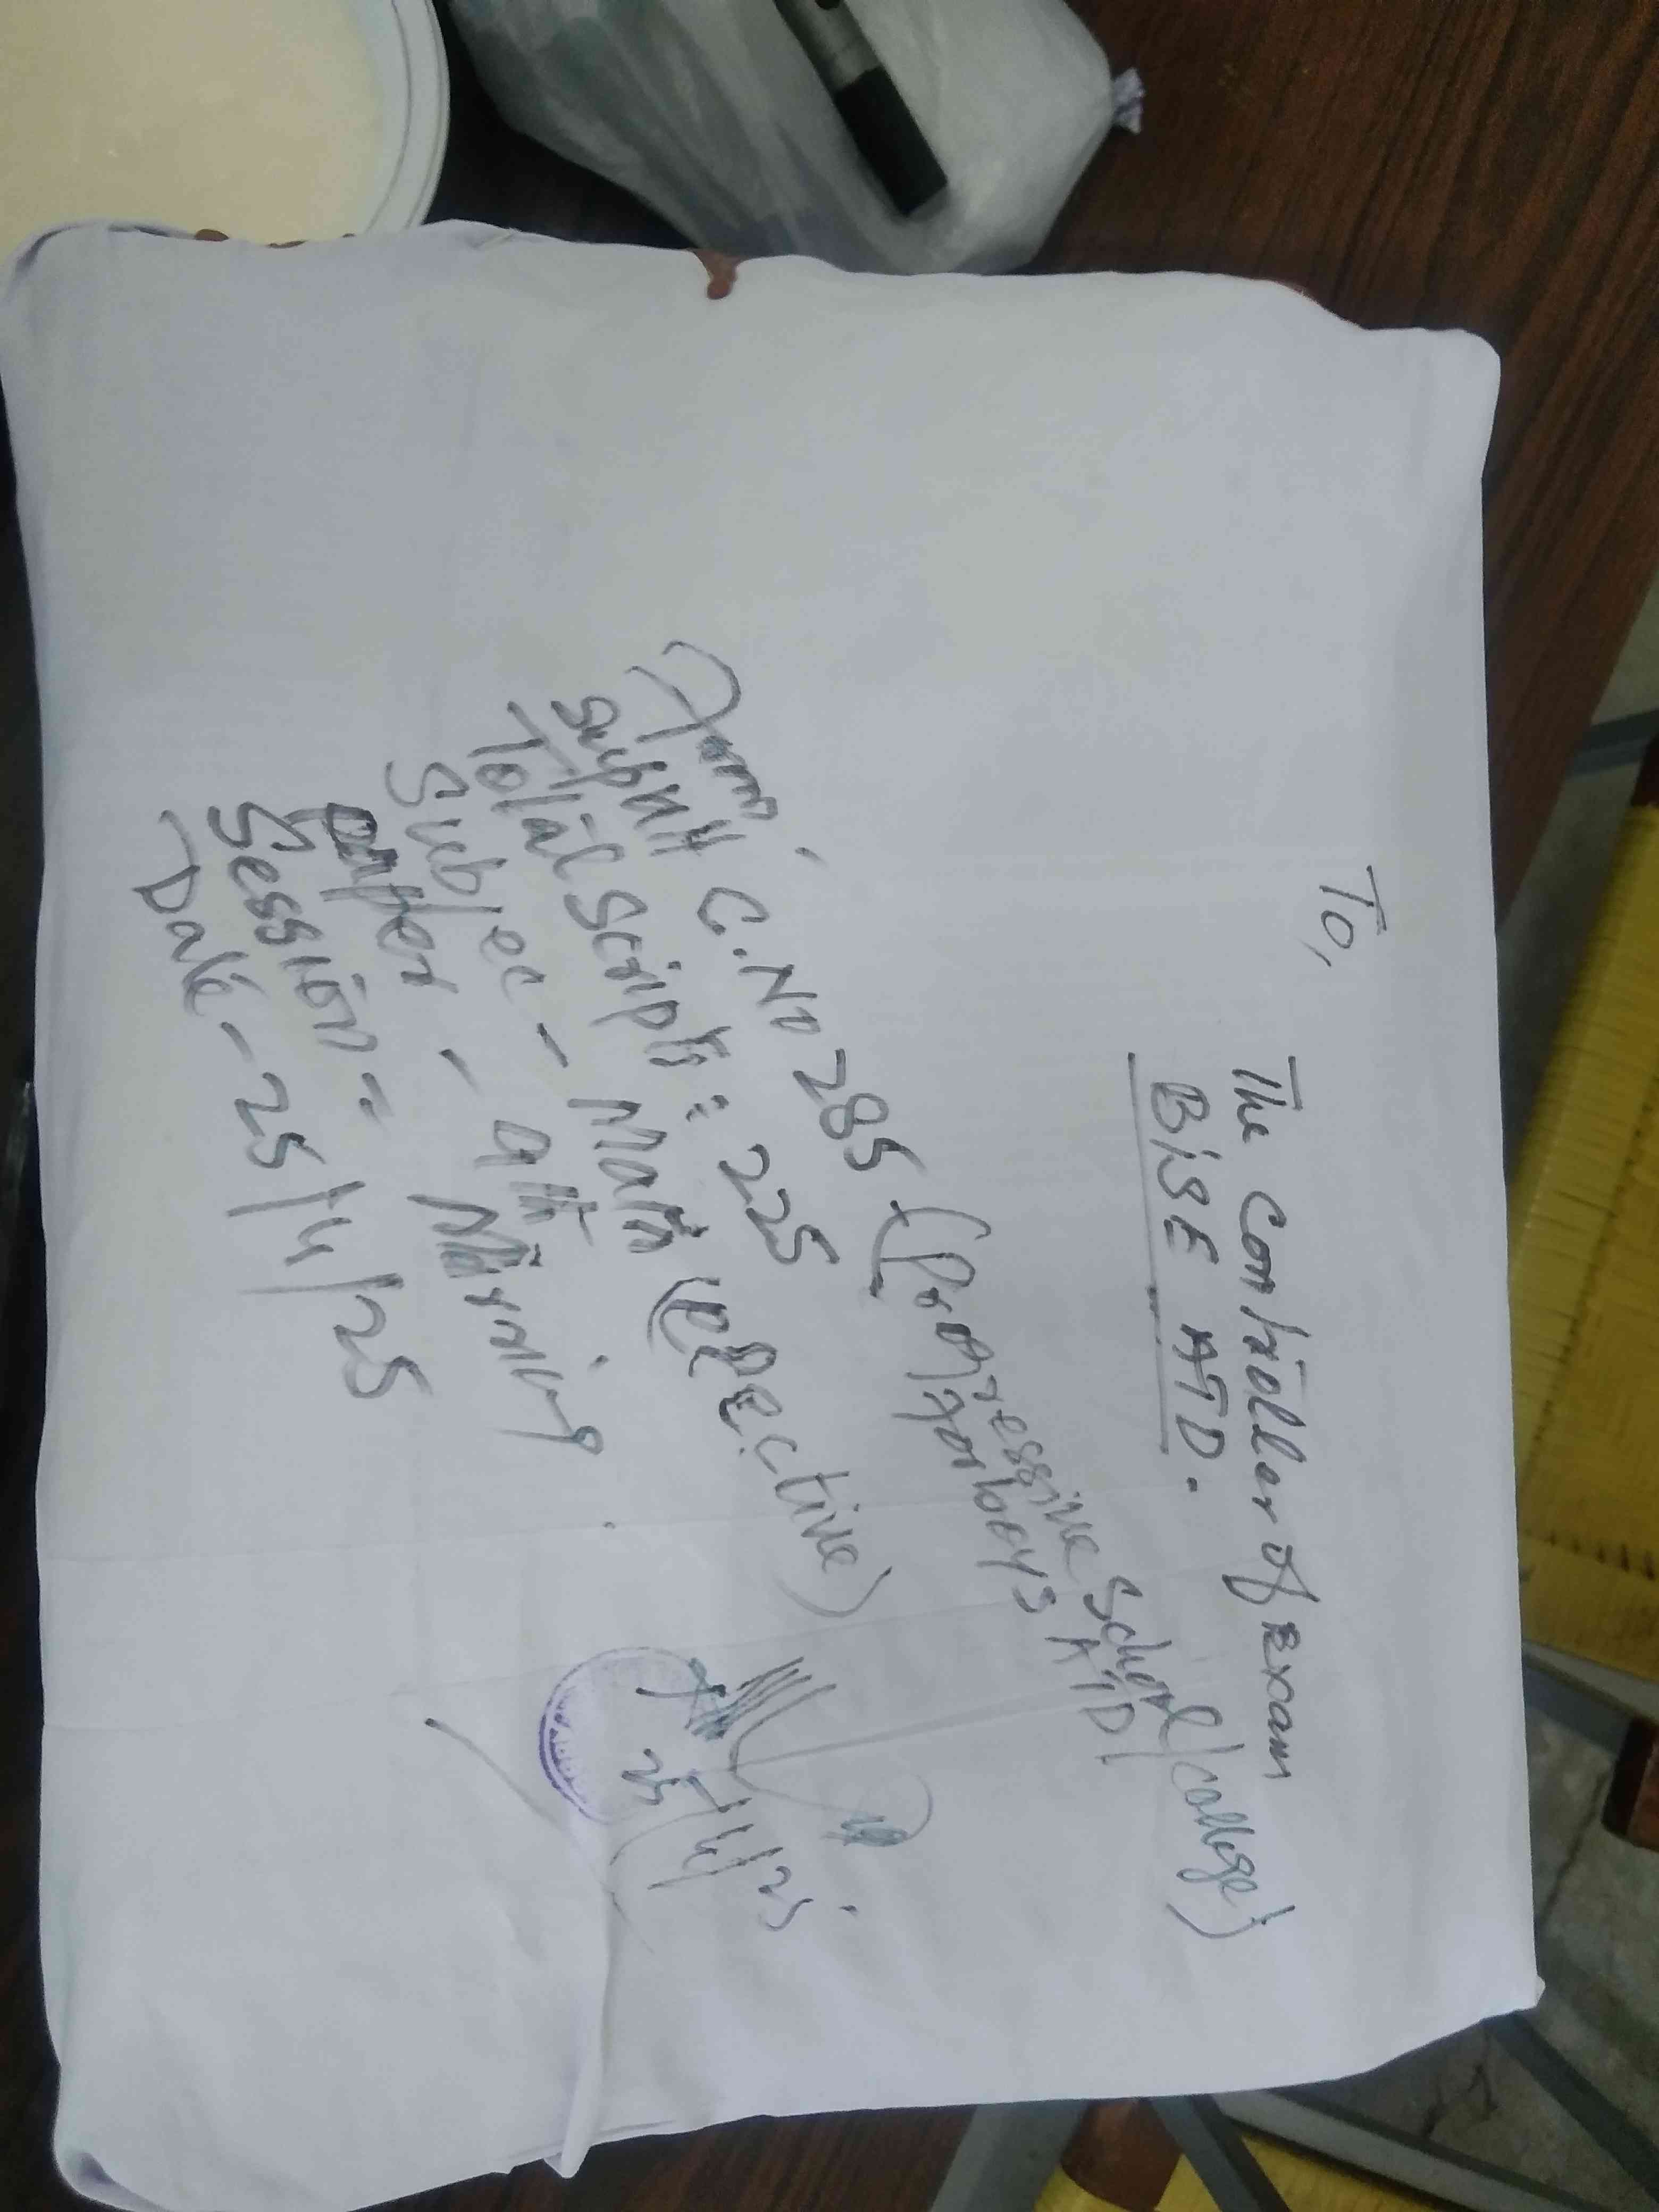 To,
The Controller of Exam
BISE ATD.
From,
Suptt C. No 285 (Progressive School/college)
for boys ATD
Total Scripts = 225
Subjec - Math (Elective)
paper - 9th
Session = Morning
Date - 25/4/25
25/4/25